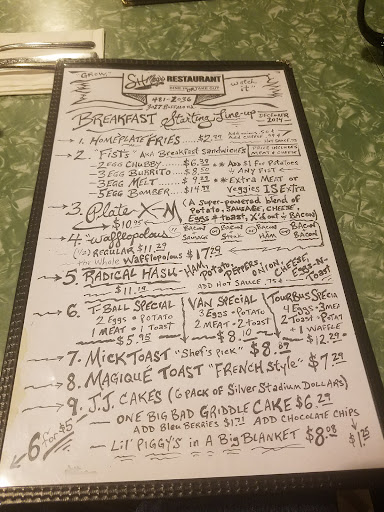 "GROW"
RESTAURANT
DINE IN OR TAKE OUT
watch it"
481-2036
BREAKFAST Starting Line-up DECEMBER 2019
1. HOMEPLATE FRIES $2.99
2. "FISTS" AKA Breakfast Sandwiches
2 EGG CHUBBY $6.39 ** Add $1 For Potatoes
3 EGG BURRITO $8.50 ANY FIST
3 EGG MELT $9.09 ** Extra MEAT or
5 EGG BOMBER $14.99 Veggies IS Extra
3. Plate X-M (A super-powered blend of
Potato, SAUSAGE, CHEESE,
$10.95 Eggs & toast, X'd out w/ BACON)
4. "Wafflepolous"
(1/2) REGULAR $11.29
BACON SAUSAGE OR BACON STEAK OR BACON HAM OR BACON BACON
the Whole Wafflopolous $17.29
5. RADICAL HASH - HAM, POTATO, PEPPERS, ONION, CHEESE, EGG-N-TOAST
$11.19 ADD HOT SAUCE .75¢
6. T-BALL SPECIAL
2 Eggs + POTATO
1 MEAT + 1 TOAST
$5.95
VAN SPECIAL
3 EGGS + POTATO
2 MEAT + 2 TOAST
$8.10
TOURBUS SPECIAL
4 EGGS + 3 MEAT
2 TOAST + POTAT
+ 1 WAFFLE
$12.29
7. MICK TOAST "Shef's pick" $8.09
8. MAGIQUÉ TOAST "FRENCH Style" $7.29
9. J.J. CAKES (6 PACK OF SILVER STADIUM DOLLARS)
6 for $5
ONE BIG BAD GRIDDLE CAKE $6.29
ADD Bleu BERRIES $1.75 ADD CHOCOLATE CHIPS
$1.75
Lil' PIGGY'S in A Big BLANKET $8.08